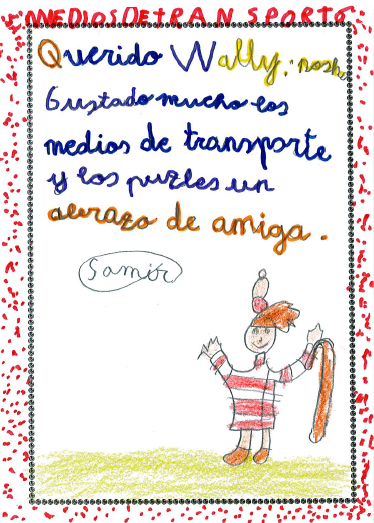 MEDIOS DE TRANSPORTE
Querido Wally: nos ha
Gustado mucho los
medios de transporte
y los puzles un
abrazo de amiga.
Samir